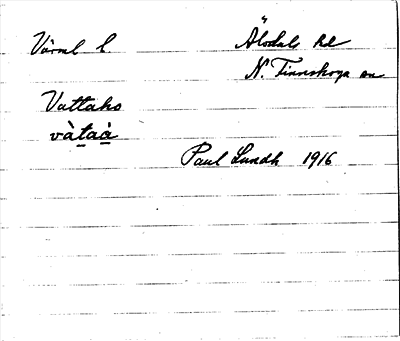 Värml l Älvdals hd
N. Finnskoga sn
Vattaho
vàtaà
Paul Lundh 1916